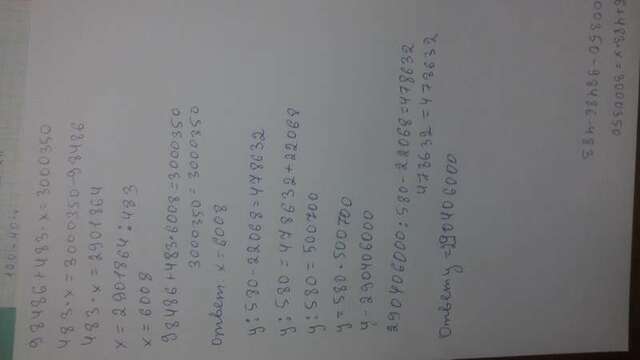 98486 + 483 · x = 3000350
483 · x = 3000350 - 98486
483 · x = 2901864
x = 2901864 : 483
x = 6008
98486 + 483 · 6008 = 3000350
3000350 = 3000350
Ответ: x = 6008
y : 580 - 22068 = 478632
y : 580 = 478632 + 22068
y : 580 = 500700
y = 580 · 500700
y - 290406000
290406000 : 580 - 22068 = 478632
478632 = 478632
Ответ y = 290406000